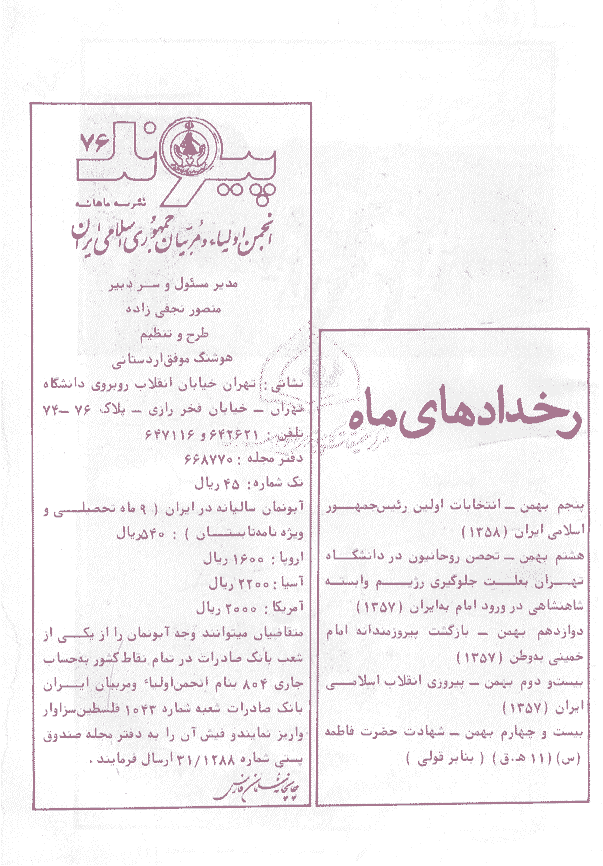 رخدادهای ماه
پنجم بهمن ــ انتخابات اولین رئیس‌جمهور
اسلامی ایران (۱۳۵۸)
هشتم بهمن ــ تحصن روحانیون در دانشگاه
تهران بعلت جلوگیری رژیم وابسته
شاهنشاهی در ورود امام به‌ایران (۱۳۵۷)
دوازدهم بهمن ــ بازگشت پیروزمندانه امام
خمینی به‌وطن (۱۳۵۷)
بیست‌و دوم بهمن ــ پیروزی انقلاب اسلامی
ایران (۱۳۵۷)
بیست و چهارم بهمن ــ شهادت حضرت فاطمه
(س) (۱۱ ه‍.ق) ( بنابر قولی )
پیوند ۷۶
نشریه ماهانه
انجمن اولیاء و مربیان جمهوری اسلامی ایران
مدیر مسئول و سر دبیر
منصور نجفی زاده
طرح و تنظیم
هوشنگ موفق‌اردستانی
نشانی: تهران خیابان انقلاب روبروی دانشگاه
تهران ــ خیابان فخر رازی ــ پلاک ۷۶ ــ ۷۴
تلفن : ۶۴۲۶۲۱ و ۶۴۷۱۱۶
دفتر مجله : ۶۶۸۷۷۰
تک شماره: ۴۵ ریال
آبونمان سالیانه در ایران ( ۹ ماه تحصیلی و
ویژه نامه‌تابستان ) : ۵۴۰ریال
اروپا : ۱۶۰۰ ریال
آسیا : ۲۲۰۰ ریال
آمریکا : ۲۰۰۰ ریال
متقاضیان میتوانند وجه آبونمان را از یکی از
شعب بانک صادرات در تمام نقاط کشور به‌حساب
جاری ۸۰۴ بنام انجمن‌اولیاء ومربیان ایران
بانک صادرات شعبه شماره ۱۰۴۳ فلسطین‌سزاوار
واریز نمایندو فیش آن را به دفتر مجله صندوق
پستی شماره ۳۱/۱۲۸۸ ارسال فرمایند .